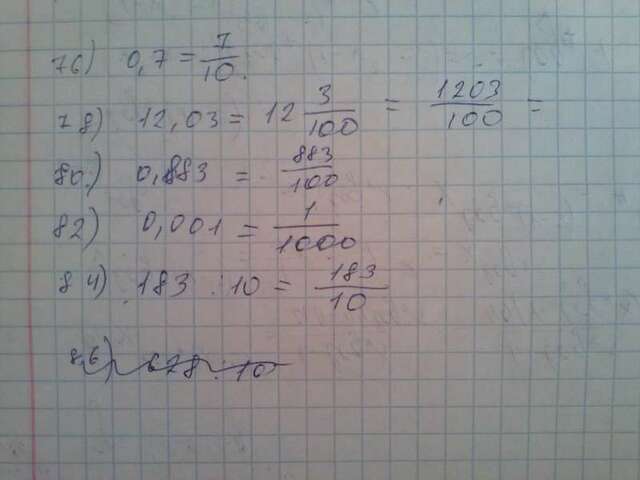 76) 0,7 = 7/10.
78) 12,03 = 12 3/100 = 1203/100 =
80) 0,883 = 883/100
82) 0,001 = 1/1000
84) 183 : 10 = 183/10
86) 678 : 10